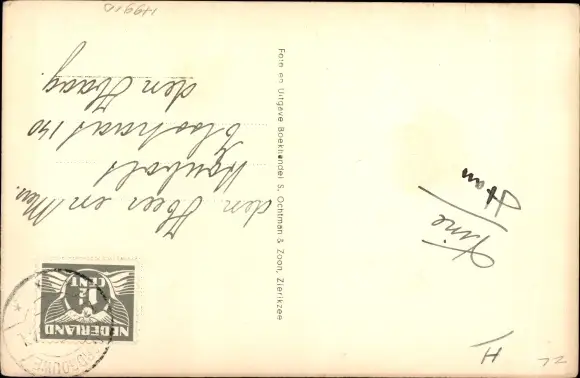 Foto en Uitgave Boekhandel S. Ochtman & Zoon, Zierikzee
den Heer en Mevr.
Kaubols
Elostraat 140
den Haag.
Tine
Han
NEDERLAND
1½
CENT
H